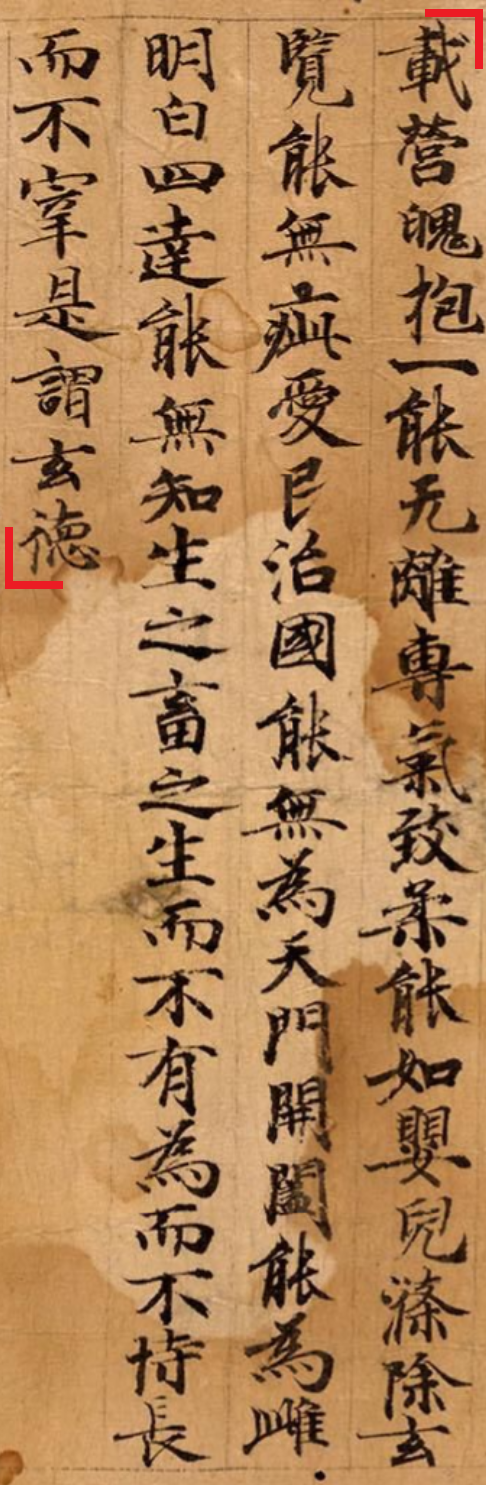 載營魄抱一能无離專氣致柔能如嬰兒滌除玄
覽能無疵愛民治國能無為天門開闔能為雌
明白四達能無知生之畜之生而不有為而不恃長
而不宰是謂玄德